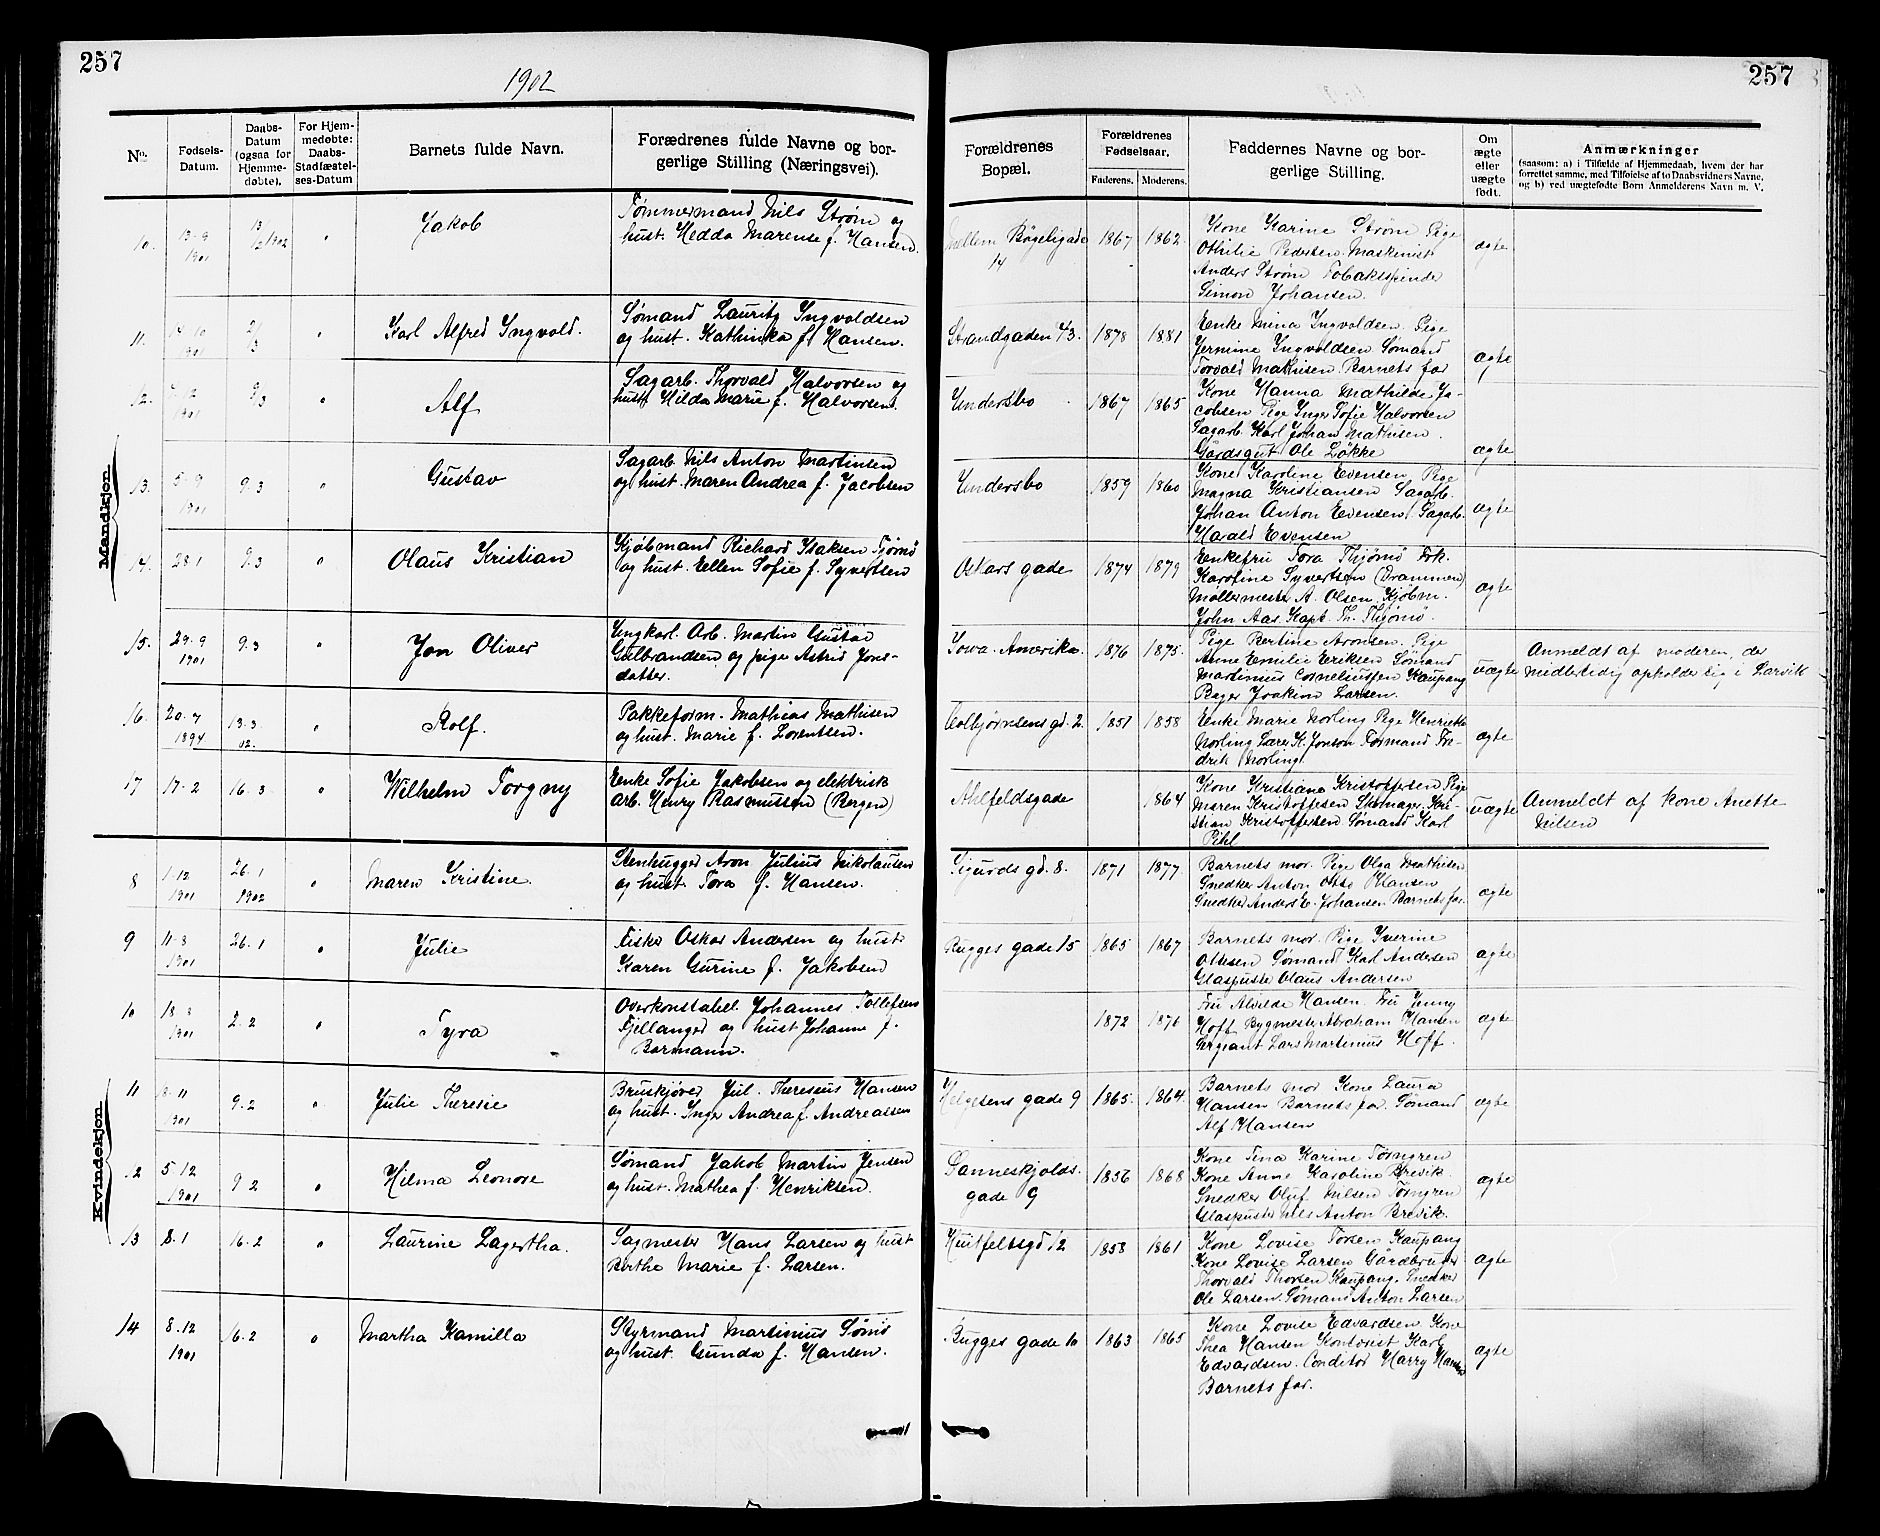 257
257
1902
No.
Fødsels-
Datum.
Daabs-
Datum
(ogsaa for
Hjemme-
døbte).
For Hjem-
medøbte:
Daabs-
Stadfæstel-
ses-Datum
Barnets fulde Navn.
Forædrenes fulde Navne og bor-
gerlige Stilling (Næringsvei).
Forældrenes
Bopæl.
Forældrenes
Fødselsaar.
Faderens.
Moderens.
Faddernes Navne og bor-
gerlige Stilling.
Om
ægte
eller
uægte
født.
Anmærkninger
(saasom: a) i Tilfælde af Hjemmedaab, hvem der har
forrettet samme, med Tilføielse af to Daabsvidners Navne,
og b) ved uægtefødte Børn Anmelderens Navn m. V.
Mandkjøn
10.
13-9
1901
13/2 1902
"
Jakob
Tømmermand Nils Strøm og
hust. Hedda Marense f. Hansen.
Mellem Bøgeligade
14
1867
1862
Kone Karine Strøm Pige
Othilie Pedersen Maskinist
Anders Strøm Tobakspinder
Simon Johansen.
ægte
11.
14-10
1901
2/3
"
Karl Alfred Ingvold.
Sømand Lauritz Ingvoldsen
og hust. Kathinka f. Hansen.
Strandgaden 43.
1878
1881
Enke Mina Ingvoldsen. Pige
Jermine Ingvoldsen Sømand
Torvald Mathisen Barnets far
ægte
12.
1901
9/3
"
Alf
Sagarb. Thorvald Halvorsen og
hust Hilda Marie f. Halvorsen.
Undersbo
1867
1865
Kone Hanna Mathilde Ja-
cobsen Pige Inger Sofie Halvorsen
Sagarb. Karl Johan Mathisen.
Gårdsgut Ole Løkke
ægte
13.
5-9
1901
9.3
"
Gustav
Sagarb. Nils Anton Martinsen
og hust. Maren Andrea f. Jacobsen
Undersbo
1859
1860
Kone Karoline Evensen Pige
Magna Kristiansen Sagarb.
Johan Anton Evensen. Sagarb.
Harald Evensen
ægte
14.
28.1
9.3
"
Olaus Kristian
Kjøbmand Richard Isaksen Tjømø
og hust. Ellen Sofie f. Syvertsen
Oskars gade
1874
1879
Enkefru Tora Thjømø Frk.
Karoline Syvertsen (Drammen)
Møllermester A. Olsen. Kjøbm.
John Aas Kapt. Th. Thjømø.
ægte
15.
29.9
1901
9.3
"
Jon Oliver
Ungkarl. Arb. Martin Gustav
Gulbrandsen og pige Astrid Jons-
datter.
Iowa. Amerika.
1876
1875.
Pige Bertine Aronsen. Pige
Anne Emilie Eriksen Sømand
Martinius Cornelsussen Kaupang
Bager Joakim Larsen.
uægte
Anmeldt af moderen, der
midlertidig opholder sig i Larvik
16.
20.7
1894
13.3
02.
"
Rolf.
Pakkeform. Mathias Mathisen
og hust. Marie f. Lorentsen.
Colbjørnsens gd. 2.
1851
1858
Enke Marie Norling Pige Henriette
Norling Lærer K. Jonson Formand Fre-
drik Norling.
ægte
17
17-2
16-3
"
Wilhelm Torgny
Enke Sofie Jakobsen og elektrisk
arb. Henry Rasmussen (Bergen)
Ahlfeldsgade
1864
Kone Kristiane Kristoffersen Pige
Maren Kristoffersen Skomager Kri-
stian Kristoffersen Sømand Karl
Pihl
uægte
Anmeldt af kone Anette
Nilsen
Kvindekjøn
8
1-12
1901
26.1
1902
"
Maren Kristine.
Stenhugger Aron Julius Nikolausen
og hust. Tora f. Hansen.
Sigurds gd. 8.
1871
1877
Barnets mor. Pige Olga Mathisen
Snedker Anton Otto Hansen
Snedker Anders E. Johansen Barnets far.
ægte
9
11-8
1901
26.1
"
Julie
Fisker Oskar Andersen og hust.
Karen Gurine f. Jakobsen
Bugges gade 15
1865
1867
Barnets mor. Pige Iverine
Ottesen Sømand Karl Andersen
Glaspuster Olaus Andersen
ægte
10
18-8
1901
2.2
"
Tyra
Overkonstabel. Johannes Tollefsen
Fjellanger og hust Johanne f.
Barmann.
1872
1876
Fru Alvilde Hansen. Fru Jenny
Hoff Bygmester Abraham Hansen
Sergeant Lars Martinius Hoff.
ægte
11
1901
9.2
"
Julie Theresie
Bruskjører Jul. Theresius Hansen
og hust. Inger Andrea f. Andreassen
Helgesens gade 9
1865.
1864
Barnets mor Kone Laura
Hansen Barnets far. Sømand
Alf Hansen
ægte
12
5.12
1901
9.2
"
Hilma Leonore
Sømand Jakob Martin Jensen
og hust. Mathea f. Henriksen.
Danneskjolds.
gade 9
1856
1868
Kone Tina Karine Tørngren
Kone Anne Karoline Brevik
Snedker Oluf Nilsen Tørngren
Glaspuster Nils Anton Brevik.
ægte
13
8.1
16.2
"
Laurine Lagertha.
Sagmester Hans Larsen og hust
Berthe Marie f. Larsen.
Huitfeltsgd 12
1858
1861
Kone Lovise Torsen Kaupang
Kone Lovise Larsen Gårdbruker
Thorvald Thorsen Kaupang. Snedker
Ole Larsen. Sømand Anton Larsen
ægte
14
8.12
1901
16.2
"
Martha Kamilla
Styrmand Martinius Sønis
og hust. Gunda f. Hansen.
Bugges gade 10
1863
1865
Kone Lovise Edvardsen Kone
Thea Hansen Kontorist Karl
Edvardsen. Conditor Harry Hansen
Barnets far.
ægte